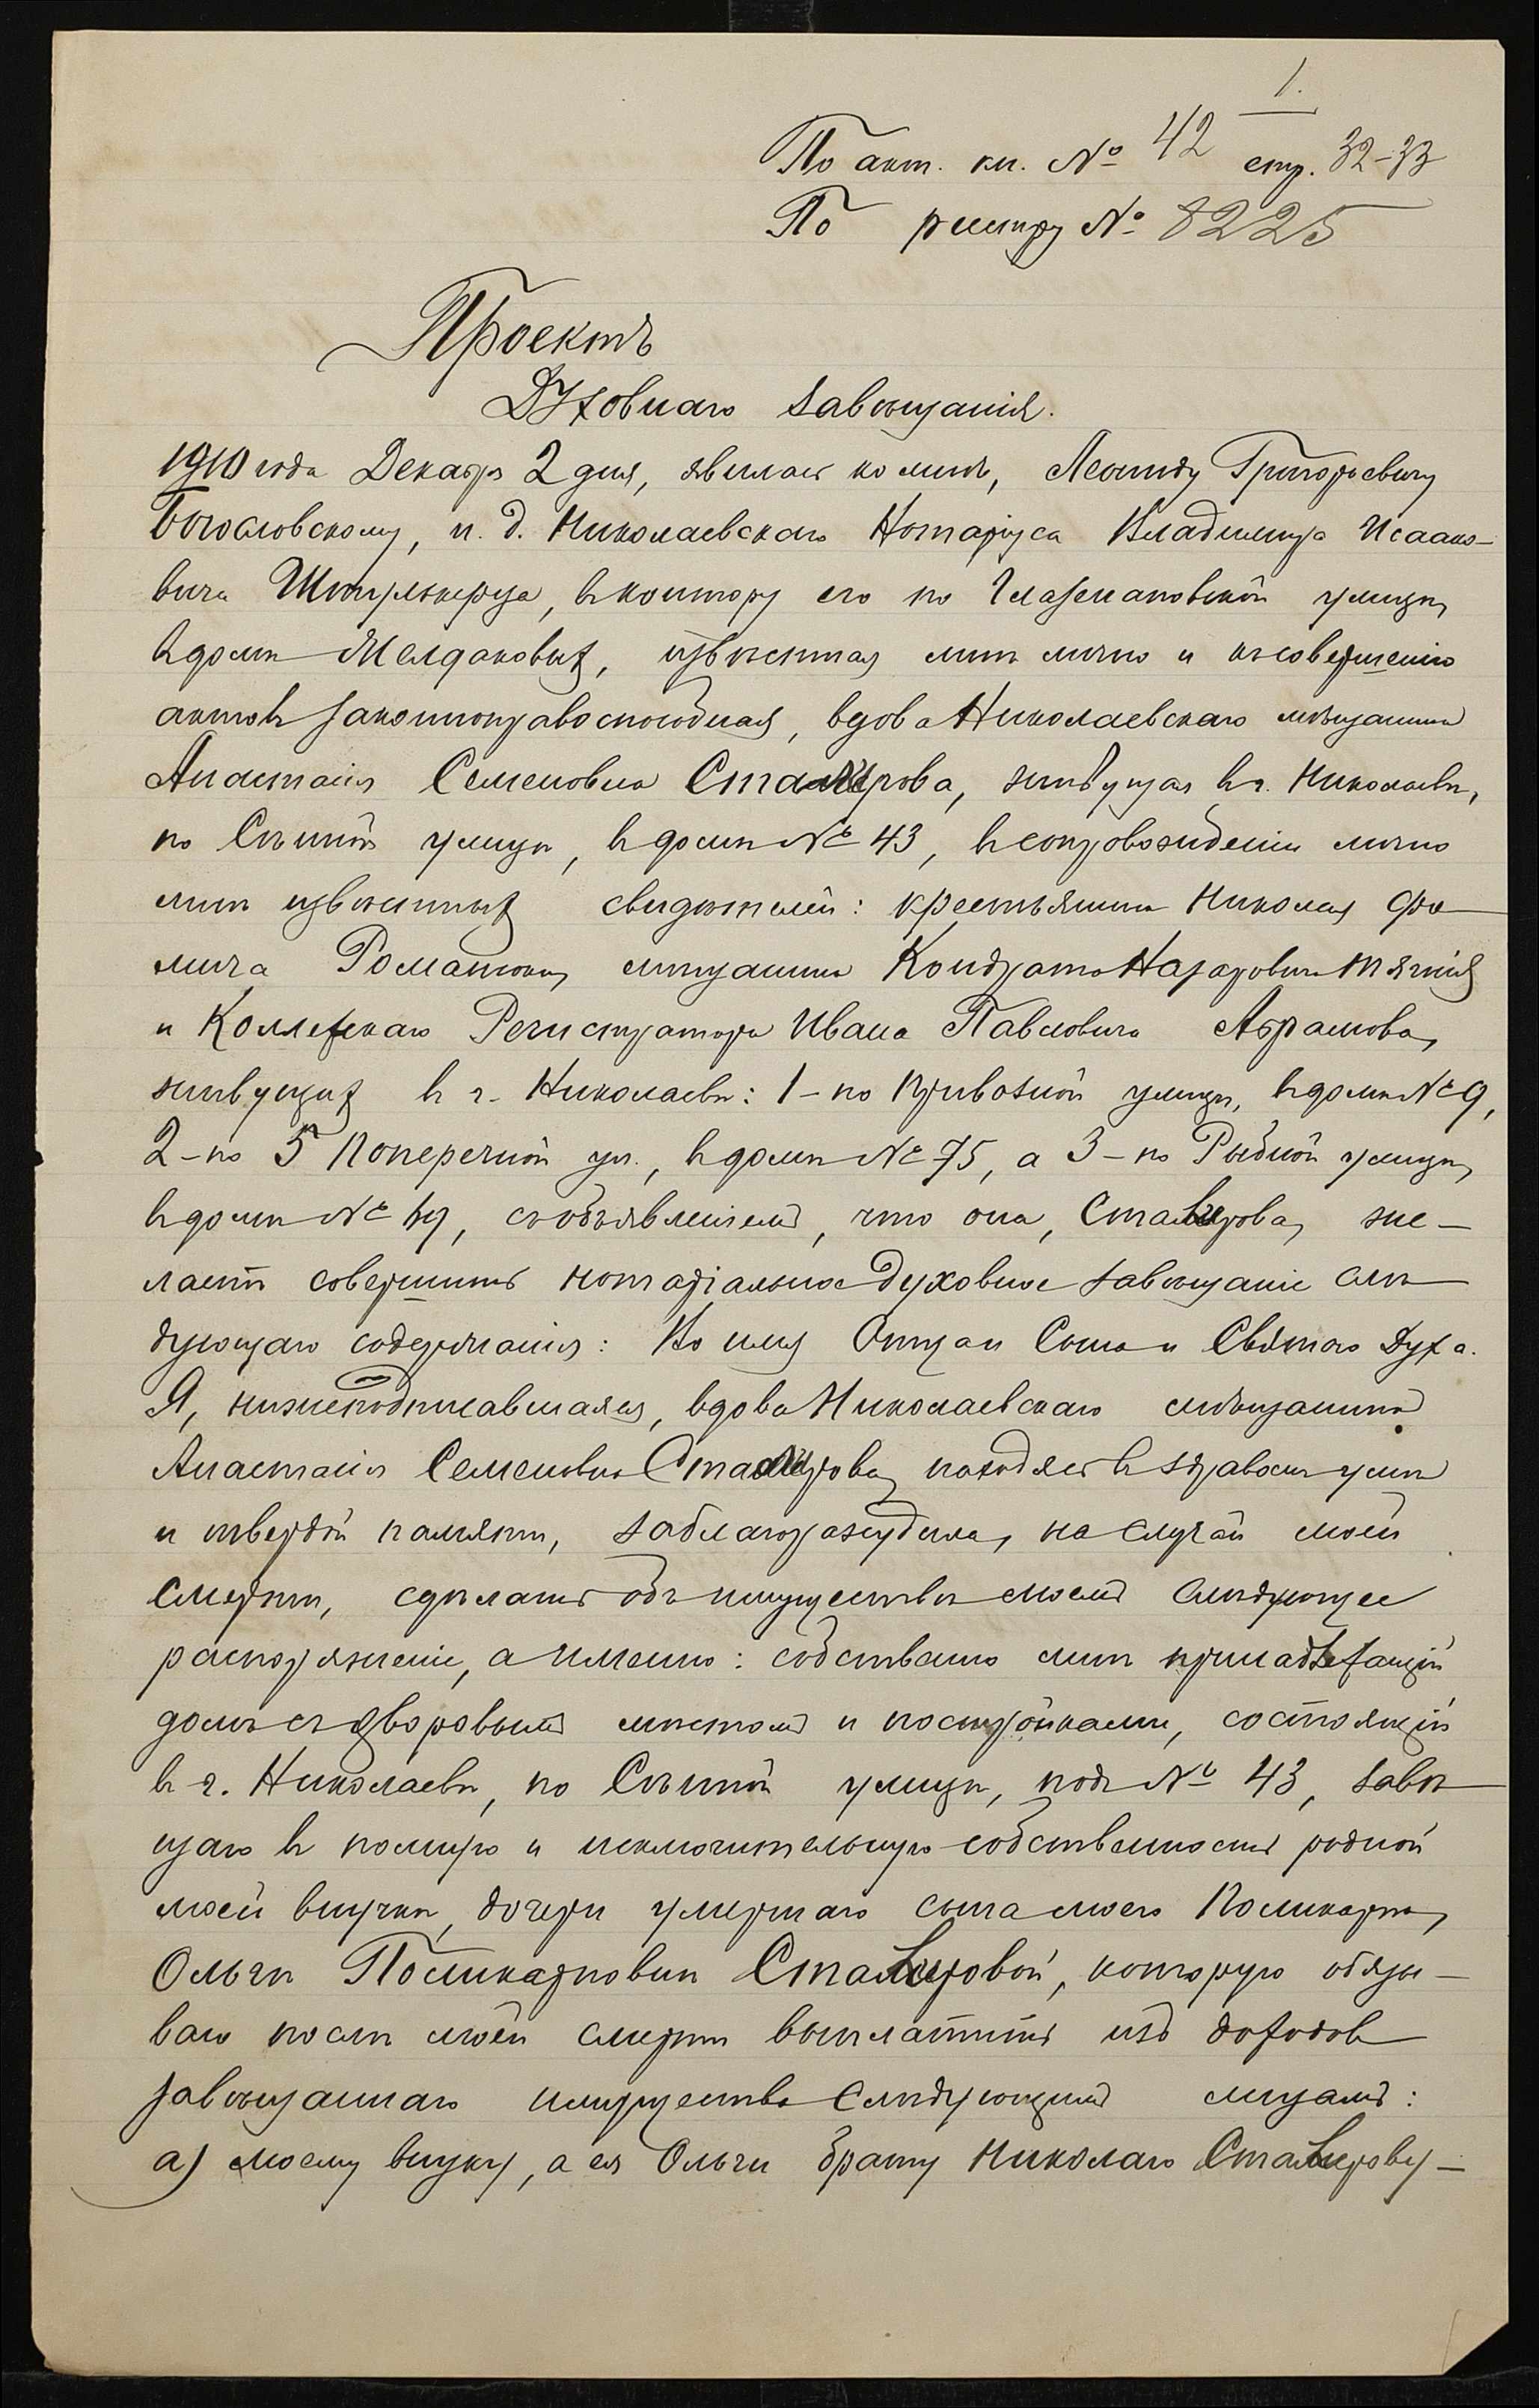 1.
По акт. кн. № 42 стр. 32-33
По реестру № 8225
Проектъ
Духовнаго завѣщанія.
1910 года Декабря 2 дня, явилась ко мнѣ, Леониду Григорьевичу
Богословскому, и. д. Николаевскаго Нотаріуса Владимира Исаако-
вича Штирльберга, въ контору его по Глазенаповской улицѣ,
въ домѣ извѣстная мнѣ лично и къ совершенію
актовъ законноправоспособная, вдова Николаевскаго мѣщанина
Анастасія Семеновна Ставирова, живущая въ г. Николаевѣ,
по Сѣнной улицѣ, въ домѣ № 43, въ сопровожденіи лично
мнѣ извѣстныхъ свидѣтелей: крестьянина Николая Фо-
мича мѣщанина Кондрата Назаровича
и Коллежскаго Регистратора Ивана Павловича Абрамова,
живущихъ въ г. Николаевѣ: 1-по Привозной улицѣ, въ домѣ № 9,
2-по 5 Поперечной ул., въ домѣ № 75, а 3-по Рыбной улицѣ,
въ домѣ № съ объявленіемъ, что она, Ставирова, же-
лаетъ совершить нотаріальное духовное завѣщаніе слѣ-
дующаго содержанія: Во имя Отца и Сына и Святаго Духа.
Я, нижеподписавшаяся, вдова Николаевскаго мѣщанина
Анастасія Семеновна Ставирова, находясь въ здравомъ умѣ
и твердой памяти, заблагоразсудила, на случай моей
смерти, сдѣлать объ имуществѣ моемъ слѣдующее
распоряженіе, а именно: собственно мнѣ принадлежащій
домъ съ дворовымъ мѣстомъ и постройками, состоящій
въ г. Николаевѣ, по Сѣнной улицѣ, подъ № 43, завѣ-
щаю въ полную и исключительную собственность родной
моей внучкѣ, дочери умершаго сына моего Поликарпа,
Ольгѣ Поликарповнѣ Ставировой, которую обязы-
ваю послѣ моей смерти выплатить изъ доходовъ
завѣщаннаго имущества слѣдующимъ лицамъ:
а) моему внуку, а ея Ольги брату Николаю Ставирову-